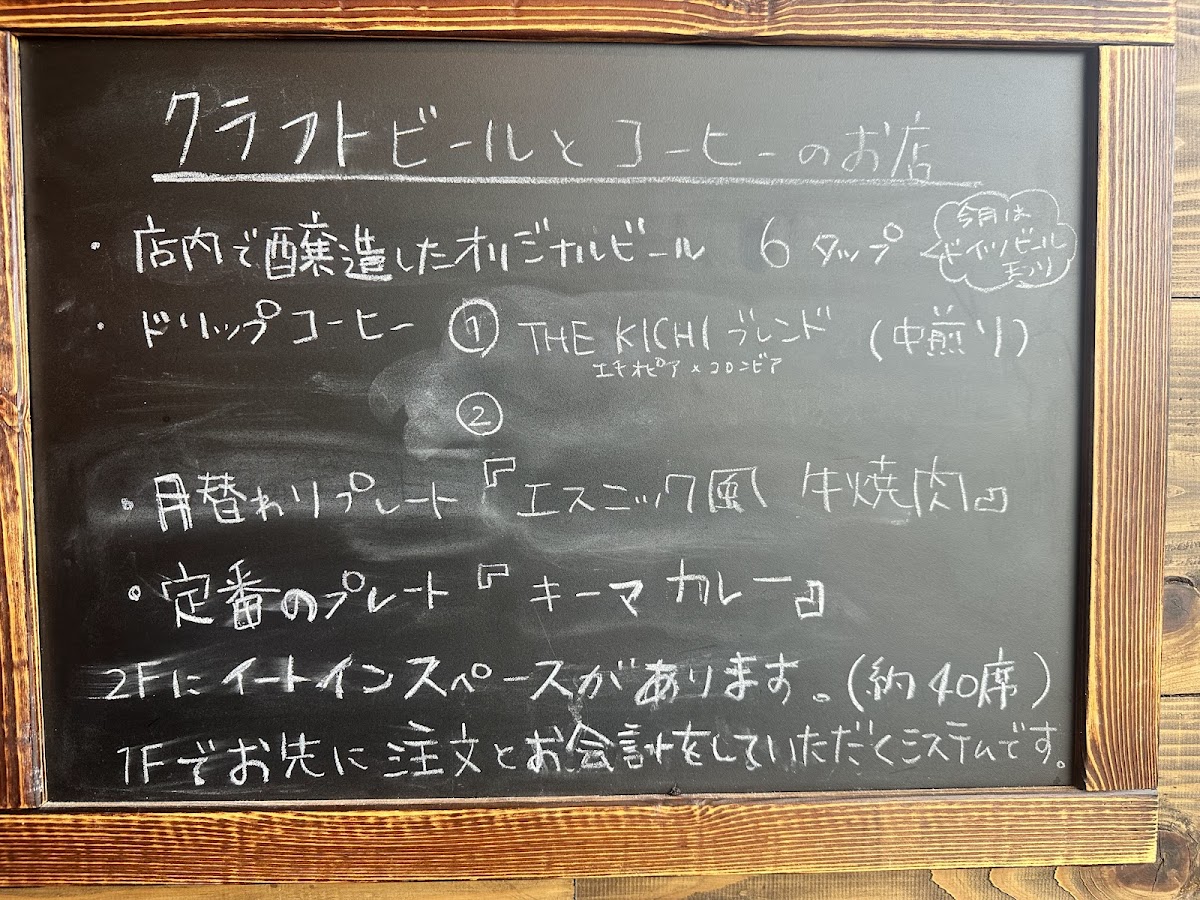 クラフトビールとコーヒーのお店
・店内で醸造したオリジナルビール 6タップ
今月は
ドイツビール
まつり
・ドリップコーヒー ① THE KICHI ブレンド (中煎り)
エチオピア×コロンビア
②
・月替わりプレート『エスニック風 牛焼肉』
・定番のプレート『キーマカレー』
2Fにイートインスペースがあります。(約40席)
1Fでお先に注文とお会計をしていただくシステムです。